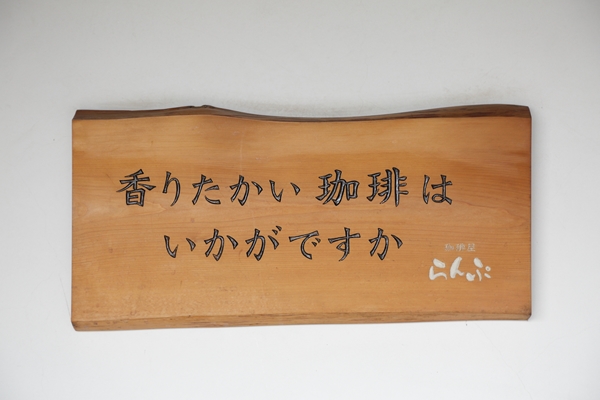 香りたかい珈琲は
いかがですか
珈琲屋
らんぷ